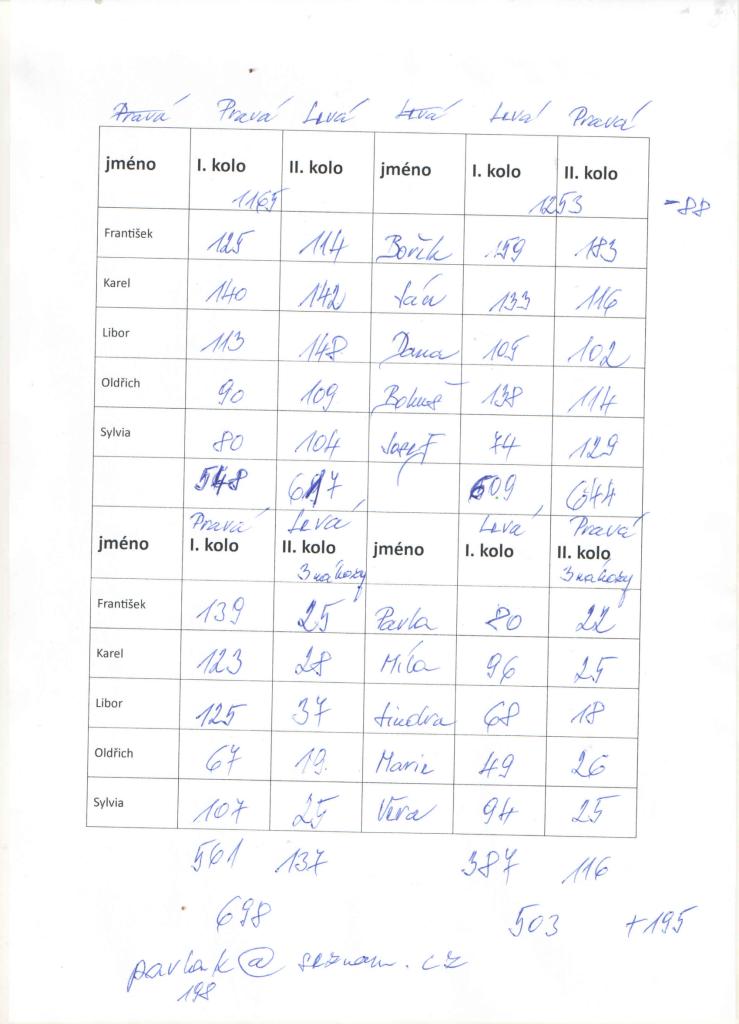 Pravá Pravá Levá Levá Levá Pravá
jméno I. kolo II. kolo jméno I. kolo II. kolo
1165 1253 -88
František 125 114 Bořik 159 183
Karel 140 142 Ján 133 116
Libor 113 148 Dana 105 102
Oldřich 90 109 Bohuš 138 114
Sylvia 80 104 Josef 74 129
548 617 609 644
Pravá Levá Levá Pravá
jméno I. kolo II. kolo jméno I. kolo II. kolo
3 náhozy 3 náhozy
František 139 25 Pavla 80 22
Karel 123 28 Míla 96 25
Libor 125 37 Jindra 68 18
Oldřich 67 19 Marie 49 26
Sylvia 107 25 Věra 94 25
561 137 387 116
698 503 +195
pavlak@seznam.cz
198